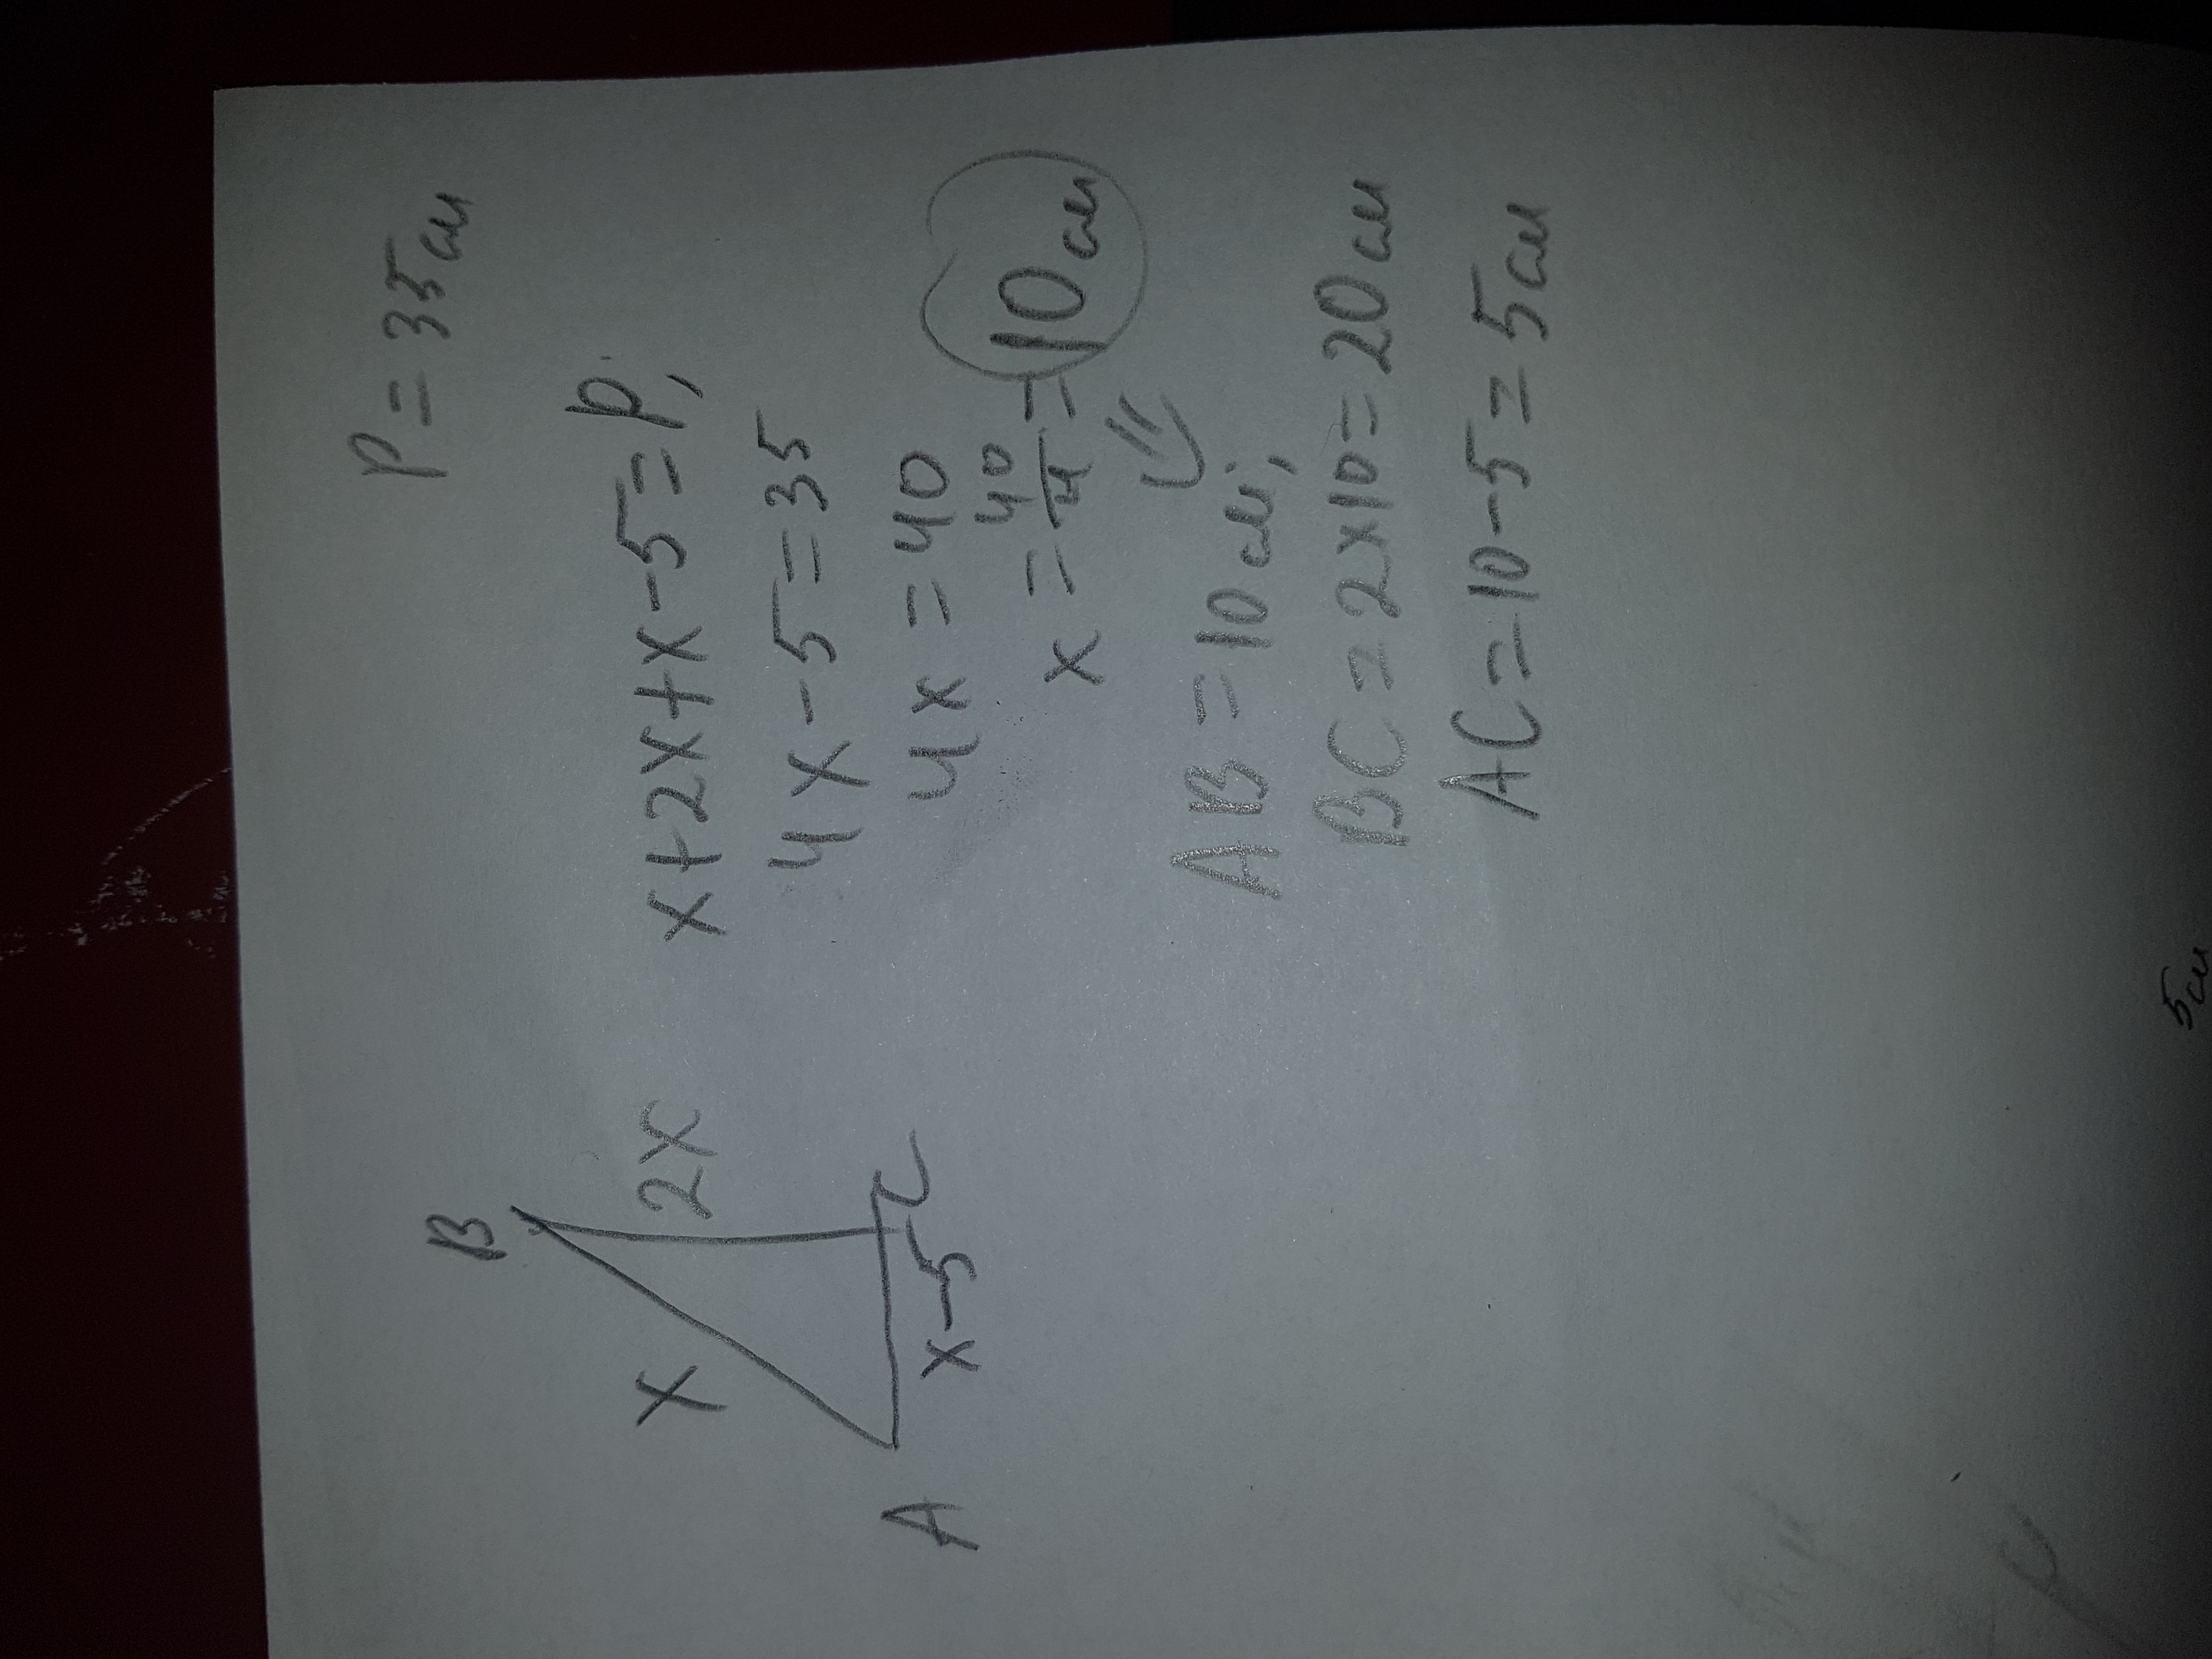 P = 35см
B
x 2x
A x-5 C
x+2x+x-5=P,
4x-5=35
4x=40
x=40/4=10см
AB=10см,
BC=2x10=20см
AC=10-5=5см
5см